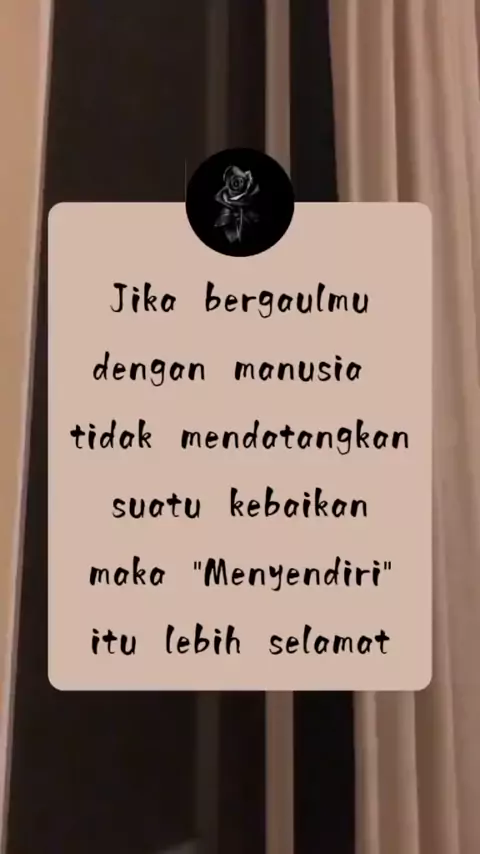 Jika bergaulmu
dengan manusia
tidak mendatangkan
suatu kebaikan
maka "Menyendiri"
itu lebih selamat